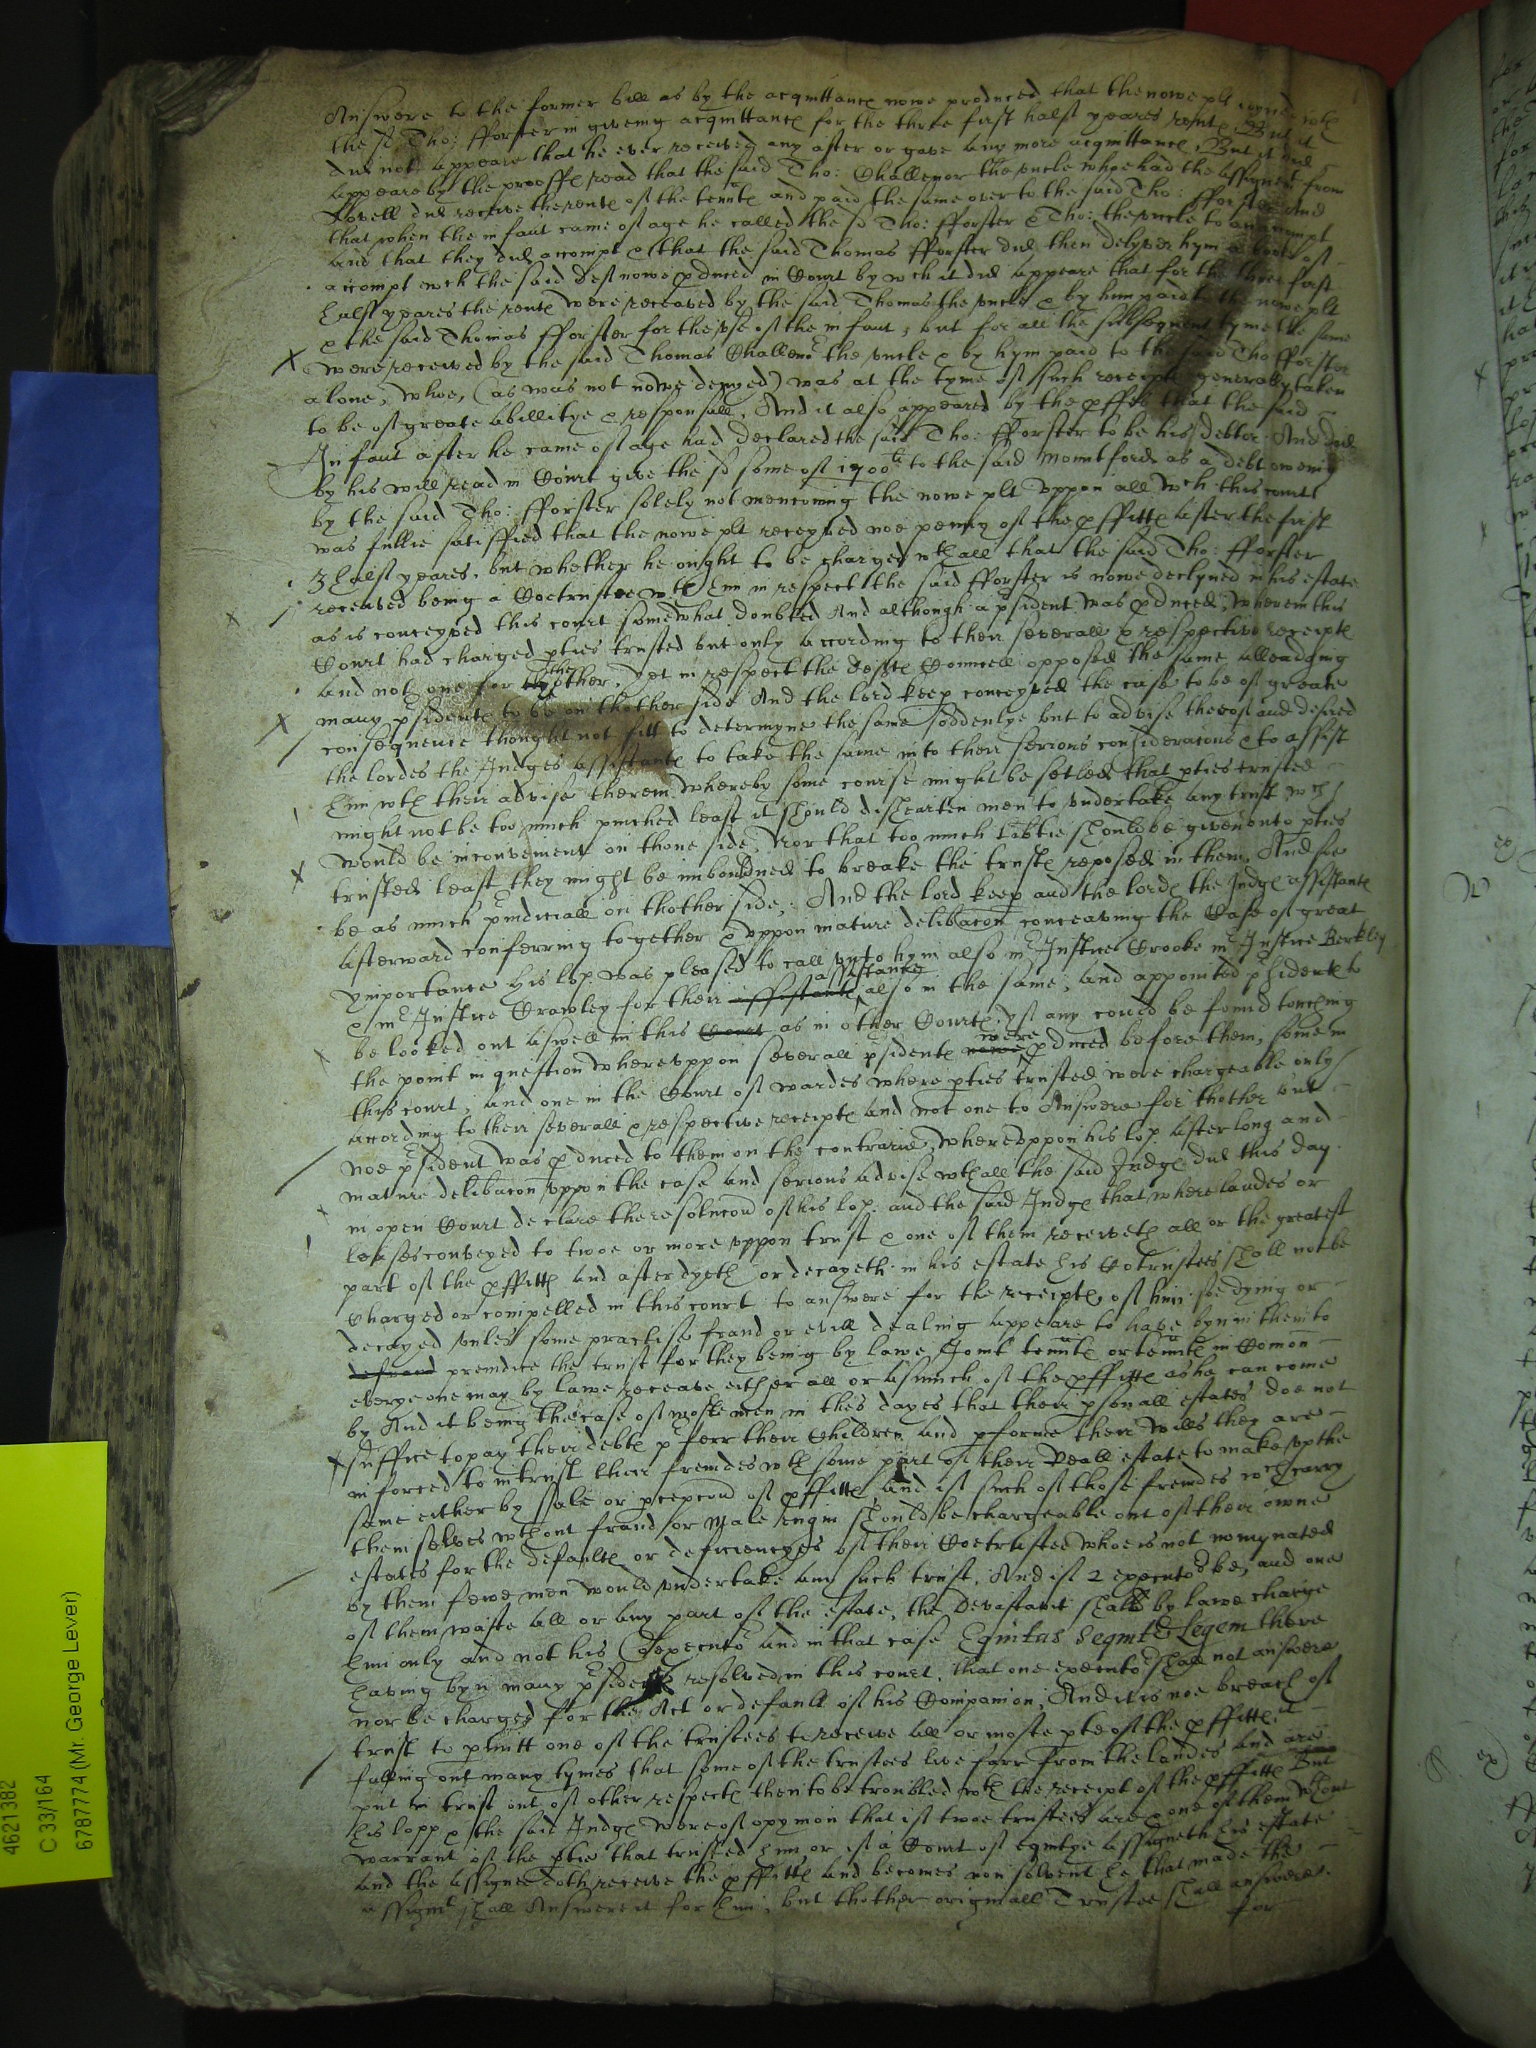 Answere to the former bill as by the acquittance nowe produced that the nowe plt ioyned wth
the sd Tho: fforster in giveing acquittance for the three first halfe yeares rente. But it
did not appeare that he ever received any after or gave any more acquittance, But it did
appeare by the prooffe read that the said Tho: Challenor the uncle whoe had the assignemt from
Lovell did receive the rente of the tennte and paid the same over to the said Tho: fforster And
that when the infant came of age he called the sd Tho: fforster & Tho: the uncle to an accompt
and that they did accompt & that the said Thomas fforster did then delyver hym a booke of
accompt wch the said deft nowe pduced in Court by wch it did appeare that for the three first
halfe yeares the rente were received by the said Thomas the uncle & by him paid to the nowe plt
& the said Thomas fforster for the use of the infant, but for all the subsequent tyme the same
were received by the said Thomas Challenor the uncle & by hym paid to the said Tho fforster
alone, whoe, (as was not nowe denyed) was at the tyme of such receipte generally taken
to be of greate abillitye & responsall, And it also appeared by the pffes that the said
Infant after he came of age had declared the said Tho: fforster to be his debtor And did
by his will read in Court give the sd some of 1900li to the said Mountford as a debt oweing
by the said Tho: fforster solely not menconing the nowe plt uppon all wch this court
was fullie satisfied that the nowe plt receyved noe penny of the pffitte after the first
3 halfe yeares, but whether he ought to be charged wth all that the said Tho: fforster
received being a Coetrustee wth him in respect the said fforster is nowe declyned in his estate
as is conceyved this court somewhat doubted And although a psident was pduced, wherein this
Court had charged pties trusted but only according to their severall & respective receipte
and not one for thother, yet in respect the defte Councell opposed the same alleadging
many psidente to be on thother side And the lord keep conceyved the case to be of greate
consequence thought not fitt to determyne the same soddenlye but to advise thereof and desired
the lordes the Judges assistante to take the same into their serious consideracons & to assist
him wth their advise therein whereby some course might be setled that pties trusted
might not be too much punished least it should dishearten men to undertake any trust wch
would be inconvenient on thone side, Nor that too much libtie should be given unto pties
trusted least they might be imboldned to breake the truste reposed in them And soe
be as much piudiciall on thother side, And the lord keep and the lorde the Judge assistante
afterward conferring together & uppon mature delibacon conceaving the Case of great
ymportance his lop. was pleased to call unto hym also mr Justice Crooke mr Justice Berkley
& mr Justice Crawley for their assistante assistance also in the same, and appointed psidente to
be looked out aswell in this Court as in other Courte, yf any could be found touching
the point in question whereuppon severall psidente were pduced before them, some in
this court, and one in the Court of wardes where pties trusted were chargeable only
according to their severall & respective receipte and not one to Answere for thother but
noe psident was pduced to them on the contrarie, whereuppon his lop. after long and
mature delibacon uppon the case and serious advise wthall the said Judge did this day
in open Court declare the resolucon of his lop. and the said Judge that where landes or
leases conveyed to twoe or more uppon trust & one of them receiveth all or the greatest
part of the pffitte and after dyeth or decayeth in his estate his Cotrustees shall not be
Charged or compelled in this court to answere for the receipte of him soe dying or
decayed unles some practise fraud or evill dealing appeare to have byn in them to
defraud preiudice the trust for they being by lawe Joint tennte or tennte in Comon
everye one may by lawe receave either all or asmuch of the pffitte as he can come
by And it being the case of moste men in thes dayes that their psonall estates doe not
suffice to pay their debte pferr their Children and pforme their wills they are
inforced to intrust their freindes wth some part of their Reall estate to make up the
same either by sale or pcepcon of pffitte and if such of those freindes wch carry
themselves wthout fraud or Male engin should be chargeable out of their owne
estates for the defaulte or deficiencyes of their Coetrustee whoe is not nomynated
by them fewe men would undertake any such trust, And if 2 executors be, and one
of them waste all or any part of the estate, the devastavit shall by lawe charge
him only and not his Coexecutor and in that case Equitas sequit Legem there
having byn many psidente resolved in this court, that one executor shall not answere
nor be charged for the Act or default of his Companion, And it is noe breach of
trust to pmitt one of the trustees to receive all or moste pte of the pffitte it
falling out many tymes that some of the trustees live farr from the landes and are
put in trust out of other respecte then to be troubled wth the receipt of the pffitte But
his lopp & the said Judge were of opynion that if twoe trustees are & one of them wthout
warrant of the ptie that trusted him, or of a Court of equitye assigneth his estate
and the assignee doth receive the pffitte and becomes non solvent he that made the
assignmt shall Answere it for him, but thother originall Trustee shall answere
for
4621382
C 33/164
6787774 (Mr. George Lever)